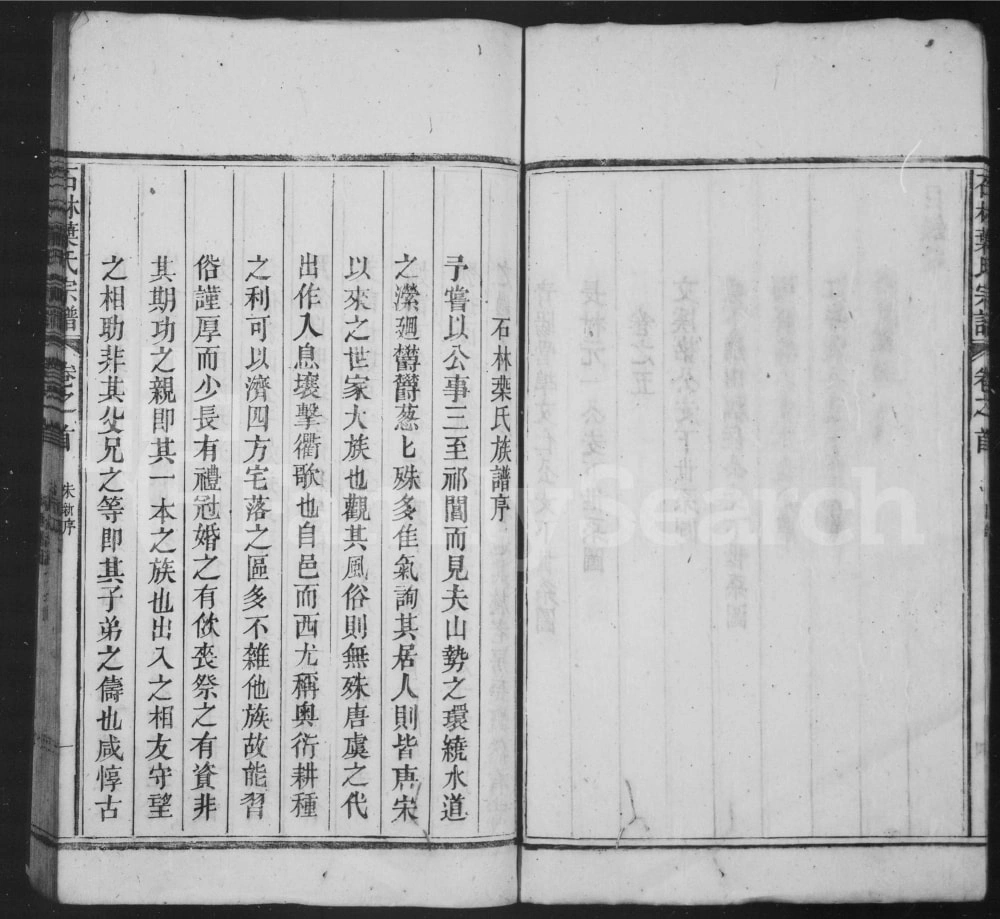 石林葉氏宗譜 卷之首
石林葉氏族譜序
予嘗以公事三至祁閶而見夫山勢之環繞水道
之瀠廻欝欝葱匕殊多佳氣詢其居人則皆唐宋
以來之世家大族也觀其風俗則無殊唐虞之代
出作入息壤擊衢歌也自邑而西尤稱奥衍耕種
之利可以濟四方宅落之區多不雜他族故能習
俗謹厚而少長有禮冠婚之有俽喪祭之有資非
其期功之親即其一本之族也出入之相友守望
之相助非其父兄之等即其子弟之儔也咸惇古
石林葉氏宗譜 卷之首 朱 序 一
FamilySearch